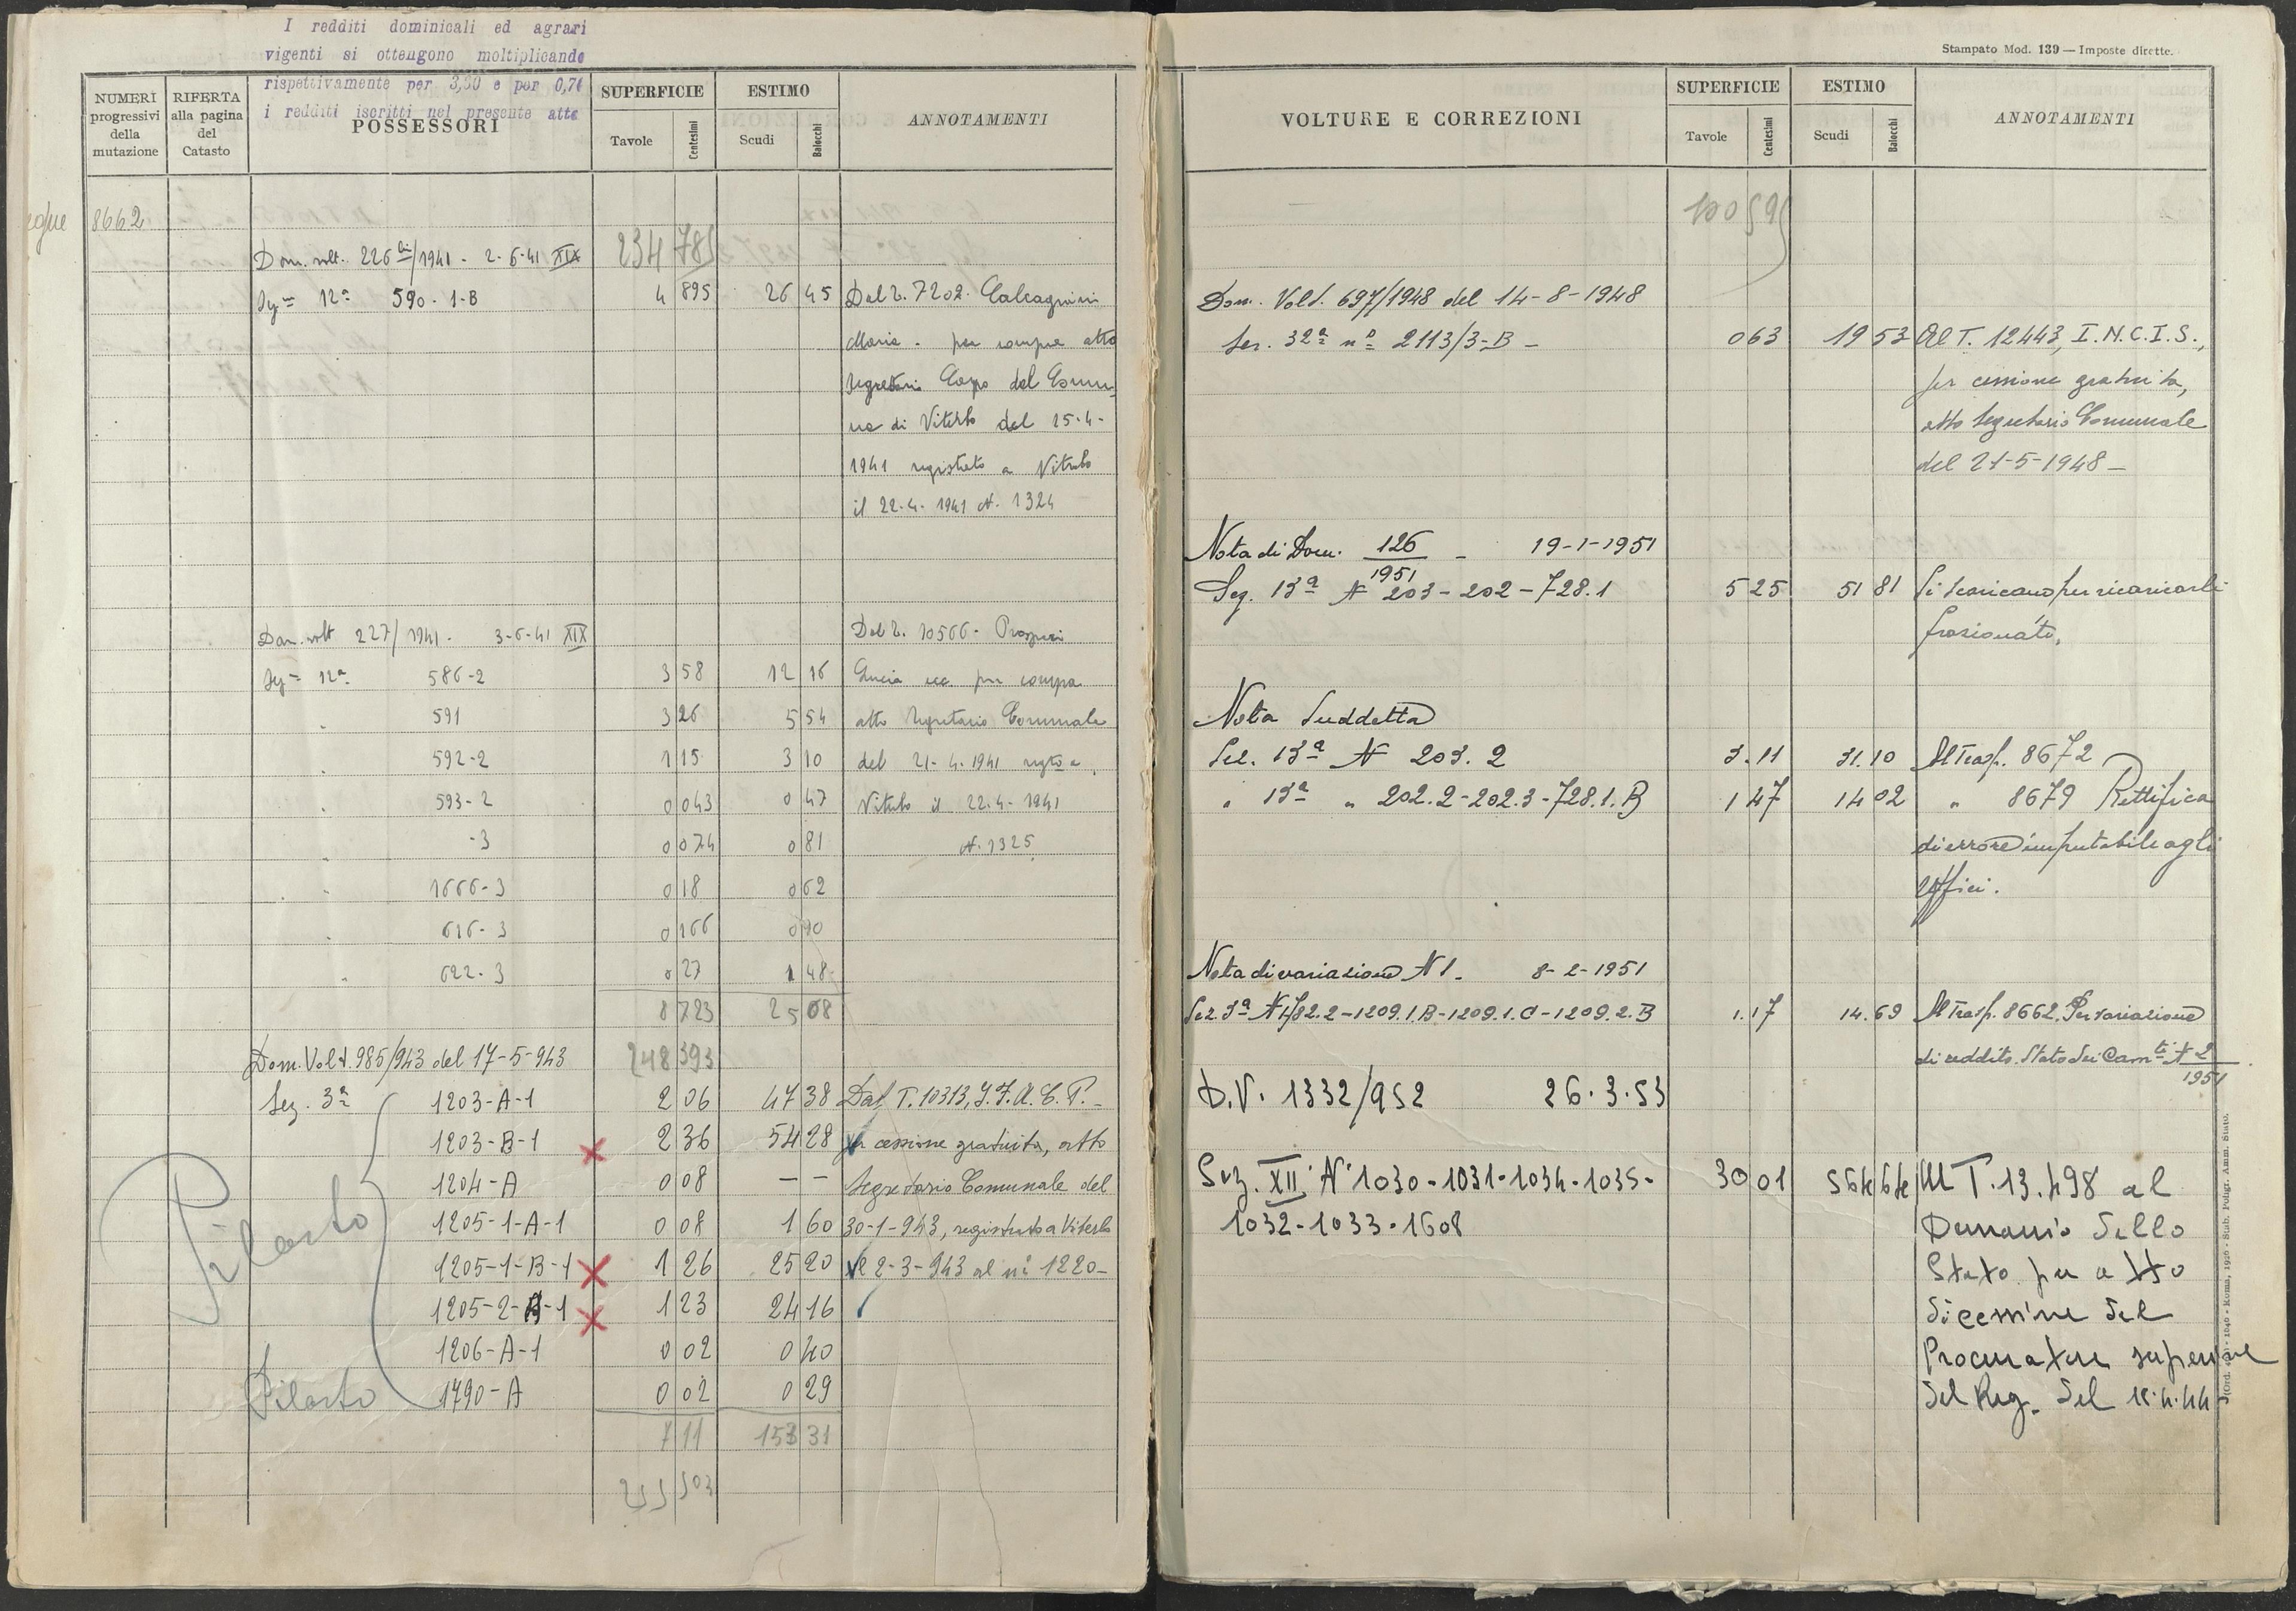 I redditi dominicali ed agrari
vigenti si ottengono moltiplicando
rispettivamente per 3,30 e per 0,70
i redditi iscritti nel presente atto
NUMERI progressivi della mutazione
RIFERTA alla pagina del Catasto
POSSESSORI
SUPERFICIE
Tavole Centesimi
ESTIMO
Scudi Baiocchi
ANNOTAMENTI
segue 8662
Dom. volt. 226 bis/1941 - 2-6-41 XIX 234 785
Sez. 12ª 590-1-B 4 895 26 45 Dal T. 7202. Calcagnini
Maria - per compra atto
Segretario Capo del Comu-
ne di Viterbo del 15-4-
1941 registrato a Viterbo
il 22-4-1941 N. 1324
Dom. volt 227/1941 - 3-6-41 XIX Dal T. 10566 - Prosperi
Sez. 12ª 586-2 3 58 12 16 Lucia ecc. per compra
" 591 3 26 5 54 atto Segretario Comunale
" 592-2 1 15 3 10 del 21-4-1941 regto a
" 593-2 0 043 0 47 Viterbo il 22-4-1941
" -3 0 074 0 81 N. 1325
" 1666-3 0 18 0 62
" 616-3 0 166 0 90
" 622-3 0 27 1 48
8 723 25 08
Dom. Volt. 985/943 del 17-5-943 248 393
Sez. 3ª 1203-A-1 2 06 47 38 Dal T. 10313, I.F.A.C.P. -
1203-B-1 x 2 36 54 28 per cessione gratuita, atto
1204-A 0 08 - - Segretario Comunale del
1205-1-A-1 0 08 1 60 30-1-943, registrato a Viterbo
1205-1-B-1 x 1 26 25 20 il 2-3-943 al n° 1220-
1205-2-B-1 x 1 23 24 16
1206-A-1 0 02 0 40
Pilastro 1790-A 0 02 0 29
Pilastro
7 11 153 31
255 503
Stampato Mod. 139 — Imposte dirette.
VOLTURE E CORREZIONI
SUPERFICIE
Tavole Centesimi
ESTIMO
Scudi Baiocchi
ANNOTAMENTI
Dom. Volt. 697/1948 del 14-8-1948
Sez. 32ª n° 2113/3-B - 0 63 19 53 Al T. 12443, I.N.C.I.S.,
per cessione gratuita,
atto Segretario Comunale
del 21-5-1948 -
Nota di Dom. 126/1951 - 19-1-1951
Sez. 13ª N 203-202-728.1 5 25 51 81 Si scaricano per ricaricarli
frazionati.
Nota Suddetta
Sez. 13ª N 203.2 3.11 31.10 Al Trasp. 8672
" 13ª " 202.2-202.3-728.1.B 1 47 14 02 " 8679 Rettifica
di errore imputabile agli
Uffici.
Nota di variazione N 1. 8-2-1951
Sez. 3ª N 1782.2-1209.1.B-1209.1.C-1209.2.B 1.17 14.69 Al Trasp. 8662. Per variazione
di reddito. Stato dei Cam.ti N 2/1951.
D.V. 1332/952 26.3.53
Sez. XII N° 1030-1031-1034-1035- 30 01 564 64 Al T. 13.498 al
1032-1033-1608 Demanio dello
Stato per atto
di cessione del
Procuratore superiore
del Reg. del 18.4.44